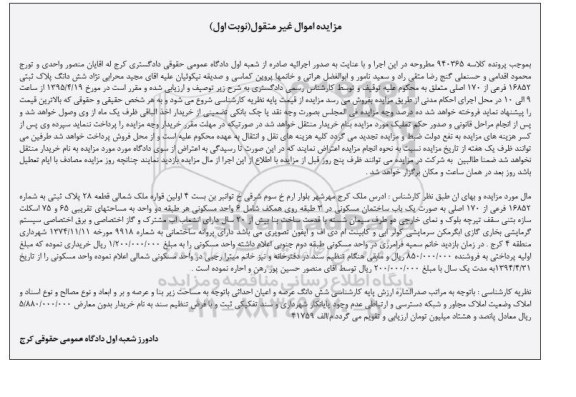 مزایده اموال غیر منقول(نوبت اول)
بموجب پرونده کلاسه ۹۴۰۳۶۵ مطروحه در این اجرا و با عنایت به صدور اجرائیه صادره از شعبه اول دادگاه عمومی حقوقی دادگستری کرج له اقایان منصور واحدی و تورج
محمود اقدامی و حسنعلی گنج رضا متقی راد و سعید نامور و ابوالفضل هراتی و خانمها پروین کماسی و صدیقه نیکوئیان علیه اقای مجید محرابی نژاد شش دانگ پلاک ثبتی
۱۶۸۵۲ فرعی از ۱۷۰ اصلی متعلق به محکوم علیه توقیف و توسط کارشناس رسمی دادگستری به شرح زیر توصیف و ارزیابی شده و مقرر است در مورخ ۱۳۹۵/۴/۱۹ از ساعت
۹ الی ۱۰ در محل اجرای احکام مدنی از طریق مزایده بفروش می رسد مزایده از قیمت پایه نظریه کارشناسی شروع می شود و به هر شخص حقیقی و حقوقی که بالاترین قیمت
را پیشنهاد نماید فروخته خواهد شد ده درصد وجه مزایده فی المجلس بصورت وجه نقد یا چک بانکی تضمینی از خریدار اخذ الباقی ظرف یک ماه از وی وصول خواهد شد و
پس از انجام مراحل قانونی و صدور حکم تملیک مورد مزایده بنام خریدار منتقل خواهد شد در صورتیکه در مهلت مقرر خریدار وجه مزایده را پرداخت ننماید سپرده وی پس از
کسر هزینه های مزایده به نفع دولت ضبط و مزایده تجدید می گردد کلیه هزینه های نقل و انتقال به عهده محکوم علیه است و از محل فروش پرداخت خواهد شد طرفین می
توانند ظرف یک هفته از تاریخ مزایده نسبت به نحوه انجام مزایده اعتراض نمایند که در این صورت تا رسیدگی به اعتراض از سوی دادگاه مورد مزایده به نام خریدار منتقل
نخواهد شد ضمنا طالبین به شرکت در مزایده می توانند ظرف پنج روز قبل از مزایده با اطلاع از این اجرا از مال مزایده بازدید نمایند چنانچه روز مزایده مصادف با ایام تعطیل
باشد روز بعد در همان ساعت و مکان برگزار خواهد شد .
مال مورد مزایده و بهای ان طبق نظر کارشناس : ادرس ملک کرج مهرشهر بلوار ارم خ سوم شرقی خ توانیر بن بست ۴ اولین قواره ملک شمالی قطعه ۲۸ پلاک ثبتی به شماره
۱۶۸۵۲ فرعی از ۱۷۰ اصلی به صورت یک باب ساختمان مسکونی در ۳ طبقه روی همکف شامل ۶ واحد مسکونی هر طبقه دو واحد به مساحتهای تقریبی ۶۵ و ۷۵ اسکلت
سازه بتنی سقف تیرچه بلوک و نمای خارجی دو طرف سیمان شسته با قدمت ساخت بنا بیش از ۲۰ سال دارای انشعاب اب مشترک و گاز اختصاصی و برق اختصاصی سیستم
گرمایشی بخاری گازی ابگرمکن سرمایشی کولر ابی و کابینت ام دی اف و ایفون تصویری می باشد دارای پروانه ساختمانی به شماره ۹۹۱۸ مورخه ۱۳۷۴/۱۱/۱۱ شهرداری
منطقه ۴ کرج . در زمان بازدید خانم سمیه فرامرزی در واحد مسکونی طبقه دوم جنوبی اعلام داشته واحد مسکونی را به مبلغ ۱/۲۰۰/۰۰۰/۰۰۰ ریال خریداری نموده که مبلغ
اولیه پرداختی به فروشنده ۸۵۰/۰۰۰/۰۰۰ ریال و مابقی هنگام تنظیم سند در دفترخانه و نیز خانم میترا رجبی در واحد مسکونی شمالی اعلام نموده واحد مسکونی را از تاریخ
۱۳۹۴/۴/۳۱به مدت یک سال با مبلغ ۲۰۰/۰۰۰/۰۰۰ ریال توسط آقای منصور حسین پور رهن و اجاره نموده است .
نظریه کارشناسی : باتوجه به مراتب صدرالشاره ارزش پایه کارشناسی شش دانگ عرصه و اعیان احداثی باتوجه به مساحت زیر بنا و عرصه و بر و ابعاد و نوع مصالح و نوع اسناد و
املاک وضعیت املاک مجاور و شبکه دسترسی و ارتباطی عدم وجود پایانکار شهرداری و سند تفکیکی ثبت و با فرض تنظیم سند به نام خریدار بدون معارض ۵/۸۸۰/۰۰۰/۰۰۰
ریال معادل پانصد و هشتاد میلیون تومان ارزیابی و تقویم می گردد.م/الف ۴۱۷۵۹
دادورز شعبه اول دادگاه عمومی حقوقی کرج